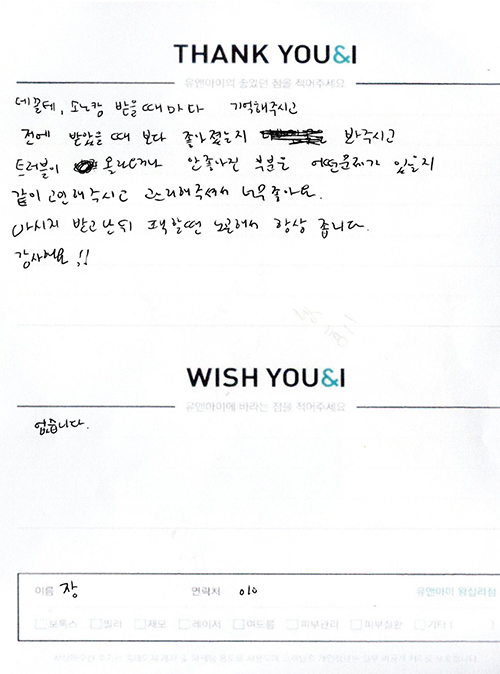 THANK YOU&I
유앤아이의 좋았던 점을 적어주세요
데꼴테, 소노캄 받을때마다 기억해주시고
전에 받았을때 보다 좋아졌을지 봐주시고
트러블이 올라오거나 안좋아진 부분은 어떤문제가 있을지
같이 고민해주시고 관리해주셔서 너무좋아요.
마사지 받고난뒤 팩할땐 노곤해서 항상 좁니다.
감사해요!!
WISH YOU&I
유앤아이에 바라는 점을 적어주세요
없습니다.
이름 장 연락처 010 유앤아이 왕십리점
보톡스 필러 제모 레이저 여드름 피부관리 피부질환 기타 ( )